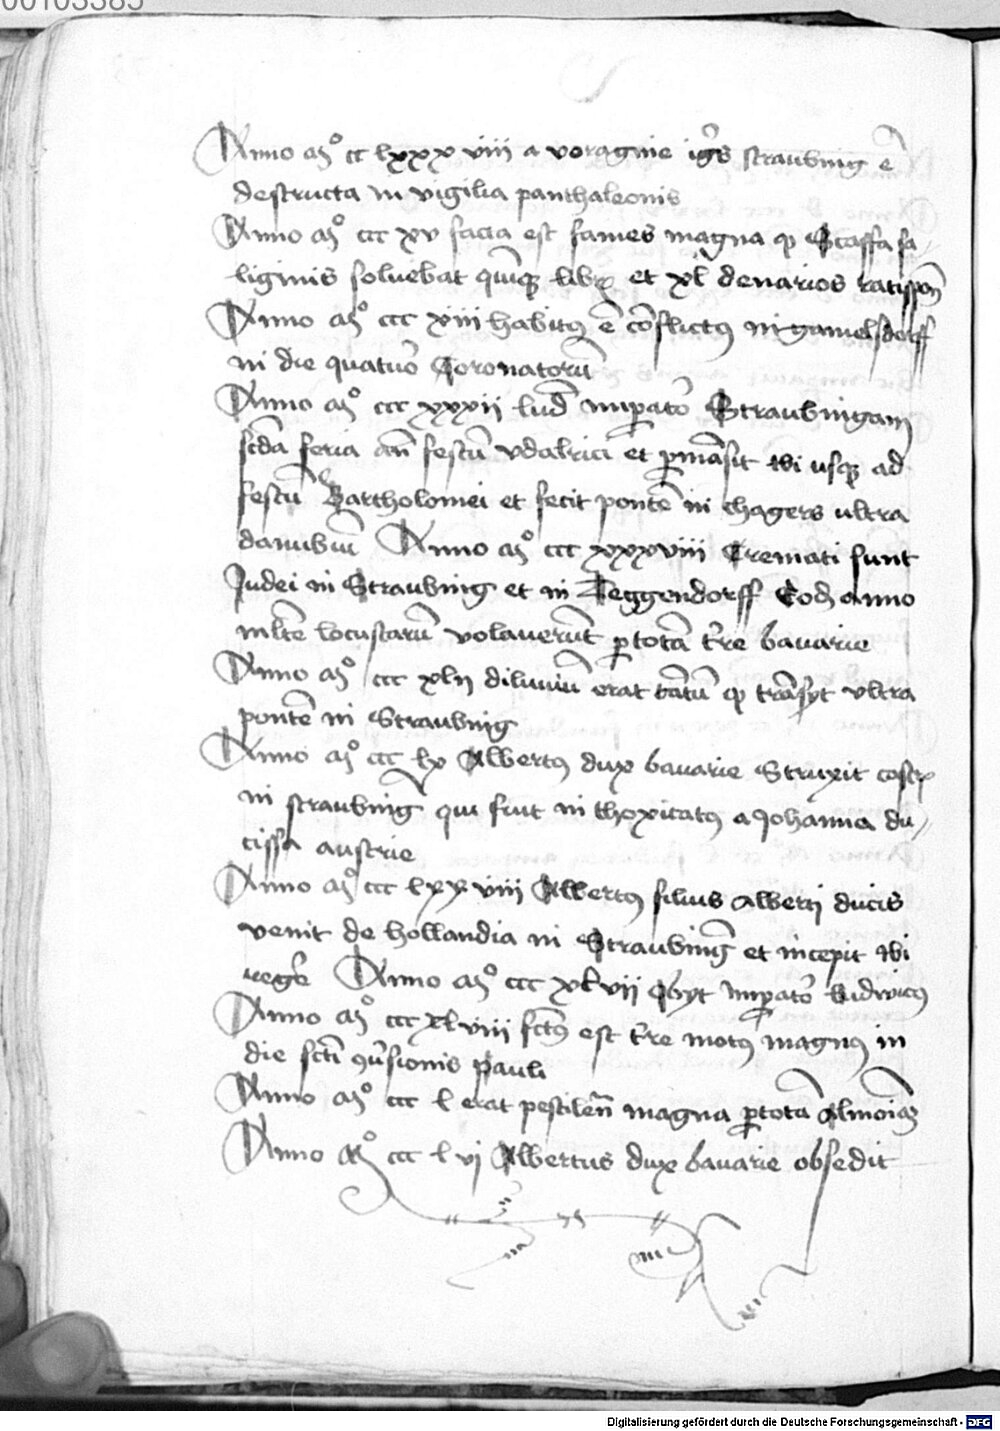 00103385
Anno mº cc lxxx viii a voragine ig̃s straubing ē
destructa in vigilia panthaleonis
Anno mº ccc xv facta est fames magna qͥ Scaffa sa
liginis soluebat quīqꝫ libr et xl denarios ratispoñ
Anno mº ccc xiii habitꝰ ē cōflictꝰ in gamelsdorff
in die quatuoꝛ Coronatorū
Anno mº ccc xxxii lud̄ imꝑatoꝛ Straubingam
scd̄a feria añ festū vdalrici et ꝑmāsit ibi usqꝫ ad
festū Bartholomei et fecit pontē in chagers ultra
danubiū Anno mº ccc xxxviii Cremati sunt
Judei in Straubing et in Teggendorff Eod̄ anno
ml̄te locustarū volauerūt ꝑ totā t̄re bauarie
Anno mº ccc xlii diluuiū erat tātū qͥ trāsiyt vltra
pontē in Straubing
Anno mº ccc lx Albertꝰ dux bauarie Struxit castꝝ
in straubing qui fuit in thoxicatꝰ a Johanna du
cissa austrie
Anno mº ccc lxx viii Albertꝰ filius Alberti ducis
venit de hollandia in Straubing̃ et incepit ibi
reg̃e Anno mº ccc xl vii Obyt imꝑatoꝛ ludwicꝰ
Anno mº ccc xl viii fct̄ꝰ est t̄re motꝰ magnꝰ in
die scti ꝯv̄sionis pauli
Anno mº ccc l erat pestilēn magna ꝑ totā Almoīaꝫ
Anno mº ccc l vi Albertus dux bauarie obsedit
Digitalisierung gefördert durch die Deutsche Forschungsgemeinschaft - DFG